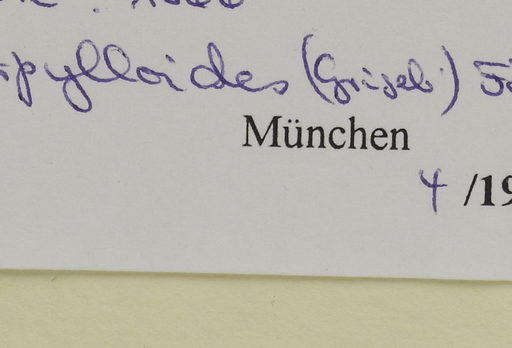 spylloides (Griseb.)
München
4 /19